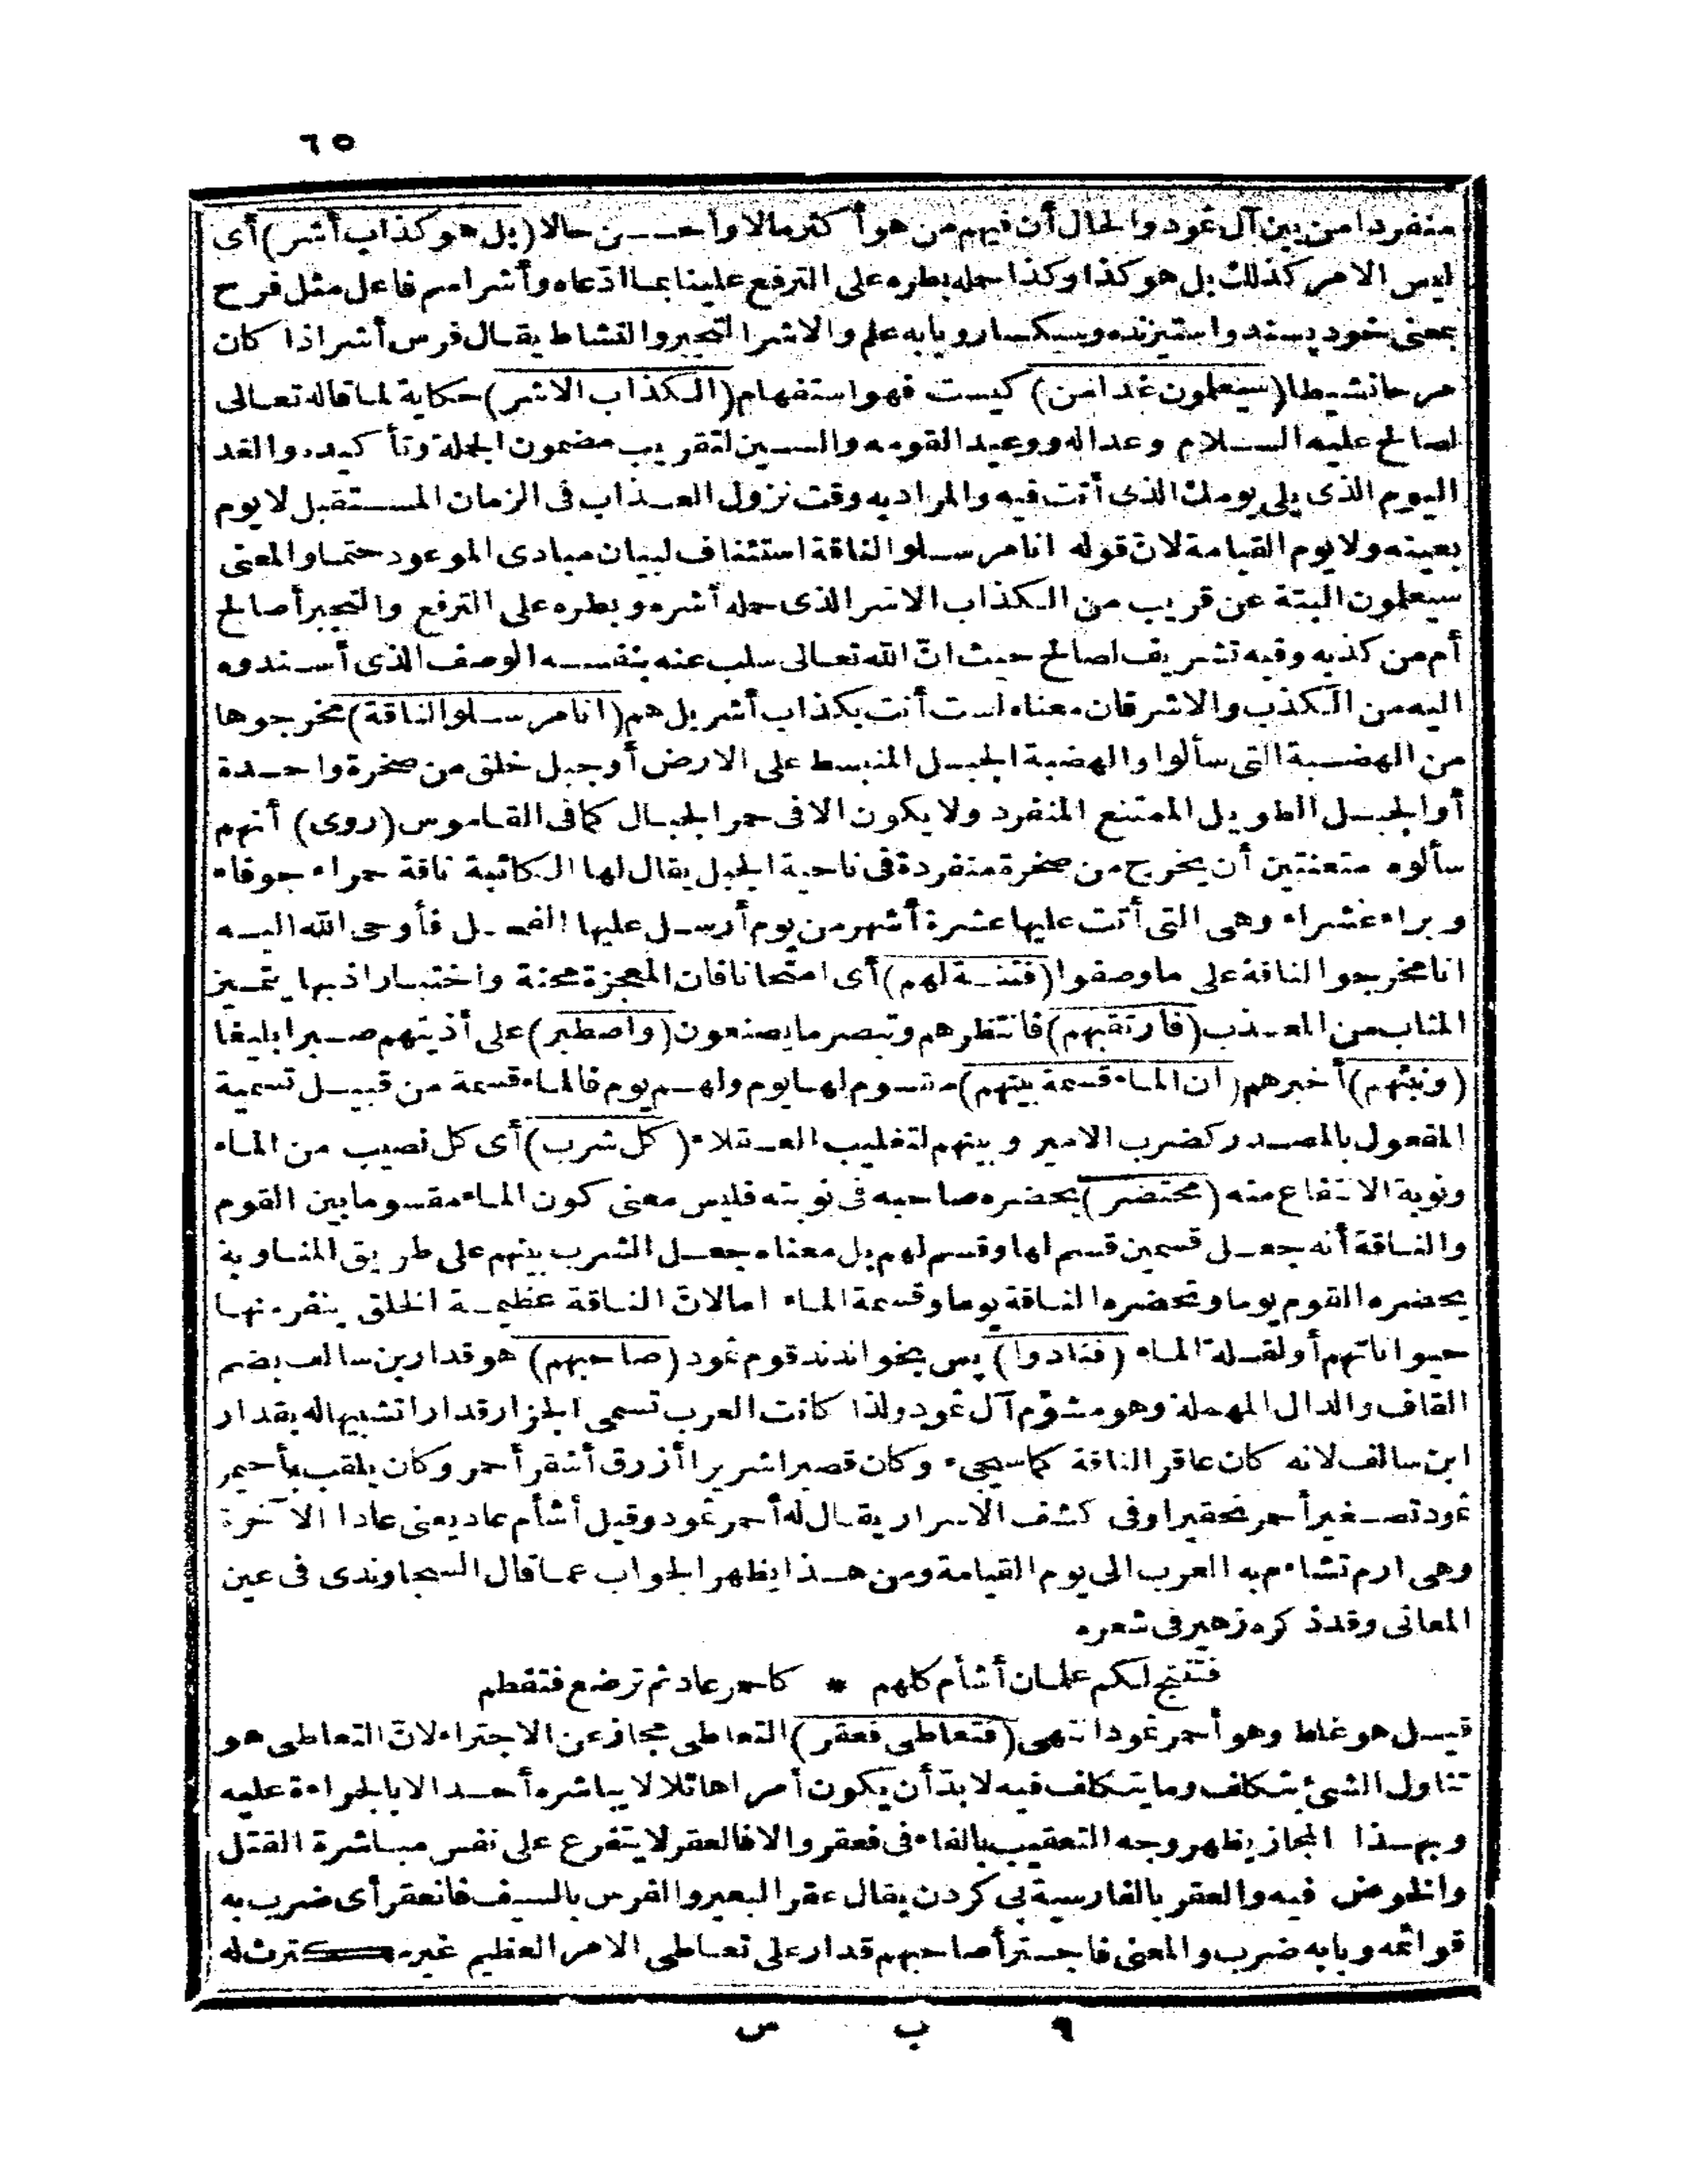 ٦٥
منفردا من بين آل ثمود والحال أن فيهم من هو أكثر مالا وأحسن حالا (بل هو كذاب أشر) أى
ليس الامر كذلك بل هو كذا وكذا حمله بطره على الترفع علينا بما ادّعاه وأشر اسم فاعل مثل فرح
بمعنى خود پسند وستيزنده وسبكسار وبابه علم والاشر التجبر والنشاط يقال فرس أشر اذا كان
مرحا نشيطا (سيعلمون غدا من) كيست فهو استفهام (الكذاب الاشر) حكاية لما قاله تعالى
لصالح عليه السلام وعدا له ووعيدا لقومه والسين لتقريب مضمون الجملة وتأكيده والغد
اليوم الذى يلى يومك الذى أنت فيه والمراد به وقت نزول العذاب فى الزمان المستقبل لا يوم
بعينه ولا يوم القيامة لانّ قوله انا مرسلو الناقة استئناف لبيان مبادى الموعود حتما والمعنى
سيعلمون البتة عن قريب من الكذاب الاشر الذى حمله أشره وبطره على الترفع والتجبر أصالح
أم من كذبه وفيه تشريف لصالح حيث انّ الله تعالى سلب عنه بنفسه الوصف الذى أسندوه
اليه من الكذب والاشر فان معناه لست أنت بكذاب أشر بل هم (انا مرسلو الناقة) مخرجوها
من الهضبة التى سألوا والهضبة الجبل المنبسط على الارض أو جبل خلق من صخرة واحدة
أو الجبل الطويل الممتنع المنفرد ولا يكون الا فى حمر الجبال كما فى القاموس (روى) أنهم
سألوه متعنتين أن يخرج من صخرة منفردة فى ناحية الجبل يقال لها الكاثبة ناقة حمراء جوفاء
وبراء عشراء وهى التى أتت عليها عشرة أشهر من يوم أرسل عليها الفحل فأوحى الله اليه
انا مخرجو الناقة على ما وصفوا (فتنة لهم) أى امتحانا فان المعجزة محنة واختبار اذ بها يتميز
المثاب من المعذب (فارتقبهم) فانتظرهم وتبصر ما يصنعون (واصطبر) على أذيتهم صبرا بليغا
(ونبئهم) أخبرهم (ان الماء قسمة بينهم) مقسوم لها يوم ولهم يوم فالماء قسمة من قبيل تسمية
المفعول بالمصدر كضرب الامير وبينهم لتغليب العقلاء (كل شرب) أى كل نصيب من الماء
ونوبة الانتفاع منه (محتضر) يحضره صاحبه فى نوبته فليس معنى كون الماء مقسوما بين القوم
والناقة أنه جعل قسمين قسم لها وقسم لهم بل معناه جعل الشرب بينهم على طريق المناوبة
يحضره القوم يوما وتحضره الناقة يوما وقسمة الماء اما لانّ الناقة عظيمة الخلق ينفر منها
حيواناتهم أو لقلة الماء (فنادوا) پس بخواندند قوم ثمود (صاحبهم) هو قدار بن سالف بضم
القاف والدال المهملة وهو مشؤم آل ثمود ولذا كانت العرب تسمى الجزار قدارا تشبيها له بقدار
ابن سالف لانه كان عاقر الناقة كما سيجىء وكان قصيرا شريرا أزرق أشقر أحمر وكان يلقب بأحيمر
ثمود تصغير أحمر تحقيرا وفى كشف الاسرار يقال له أحمر ثمود وقيل أشأم عاد يعنى عادا الآخرة
وهى ارم تشاءم به العرب الى يوم القيامة ومن هذا يظهر الجواب عما قال السجاوندى فى عين
المعانى وقد ذكره زهير فى شعره
فتنتج لكم غلمان أشأم كلهم * كاحمر عاد ثم ترضع فتفطم
قيل هو غلط وهو أحمر ثمود انتهى (فتعاطى فعقر) التعاطى مجاز عن الاجتراء لانّ التعاطى هو
تناول الشىء بتكلف وما يتكلف فيه لا بدّ أن يكون أمرا هائلا لا يباشره أحد الا بالجراءة عليه
وبهذا المجاز يظهر وجه التعقيب بالفاء فى فعقر والا فالعقر لا يتفرع على نفس مباشرة القتل
والخوض فيه والعقر بالفارسية پى كردن يقال عقر البعير والفرس بالسيف فانعقر أى ضرب به
قوائمه وبابه ضرب والمعنى فاجترأ صاحبهم قدار على تعاطى الامر العظيم غير مكترث له
٩ ب س